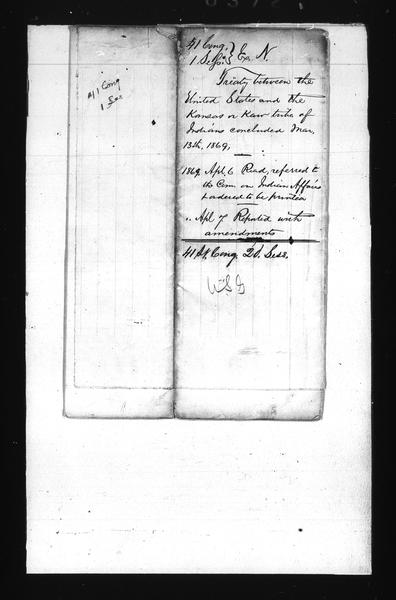 41 Cong
1 Ses
41 Cong, } Ex. N.
1 Sess
Treaty between the
United States and the
Kansas or Kaw tribe of
Indians concluded Mar,
13th, 1869,
1869, Apl, 6 Read, referred to
the Com on Indian Affairs
& ordered to be printed
" Apl 7 Reported with
amendments
41st, Cong, 2d, Sess,